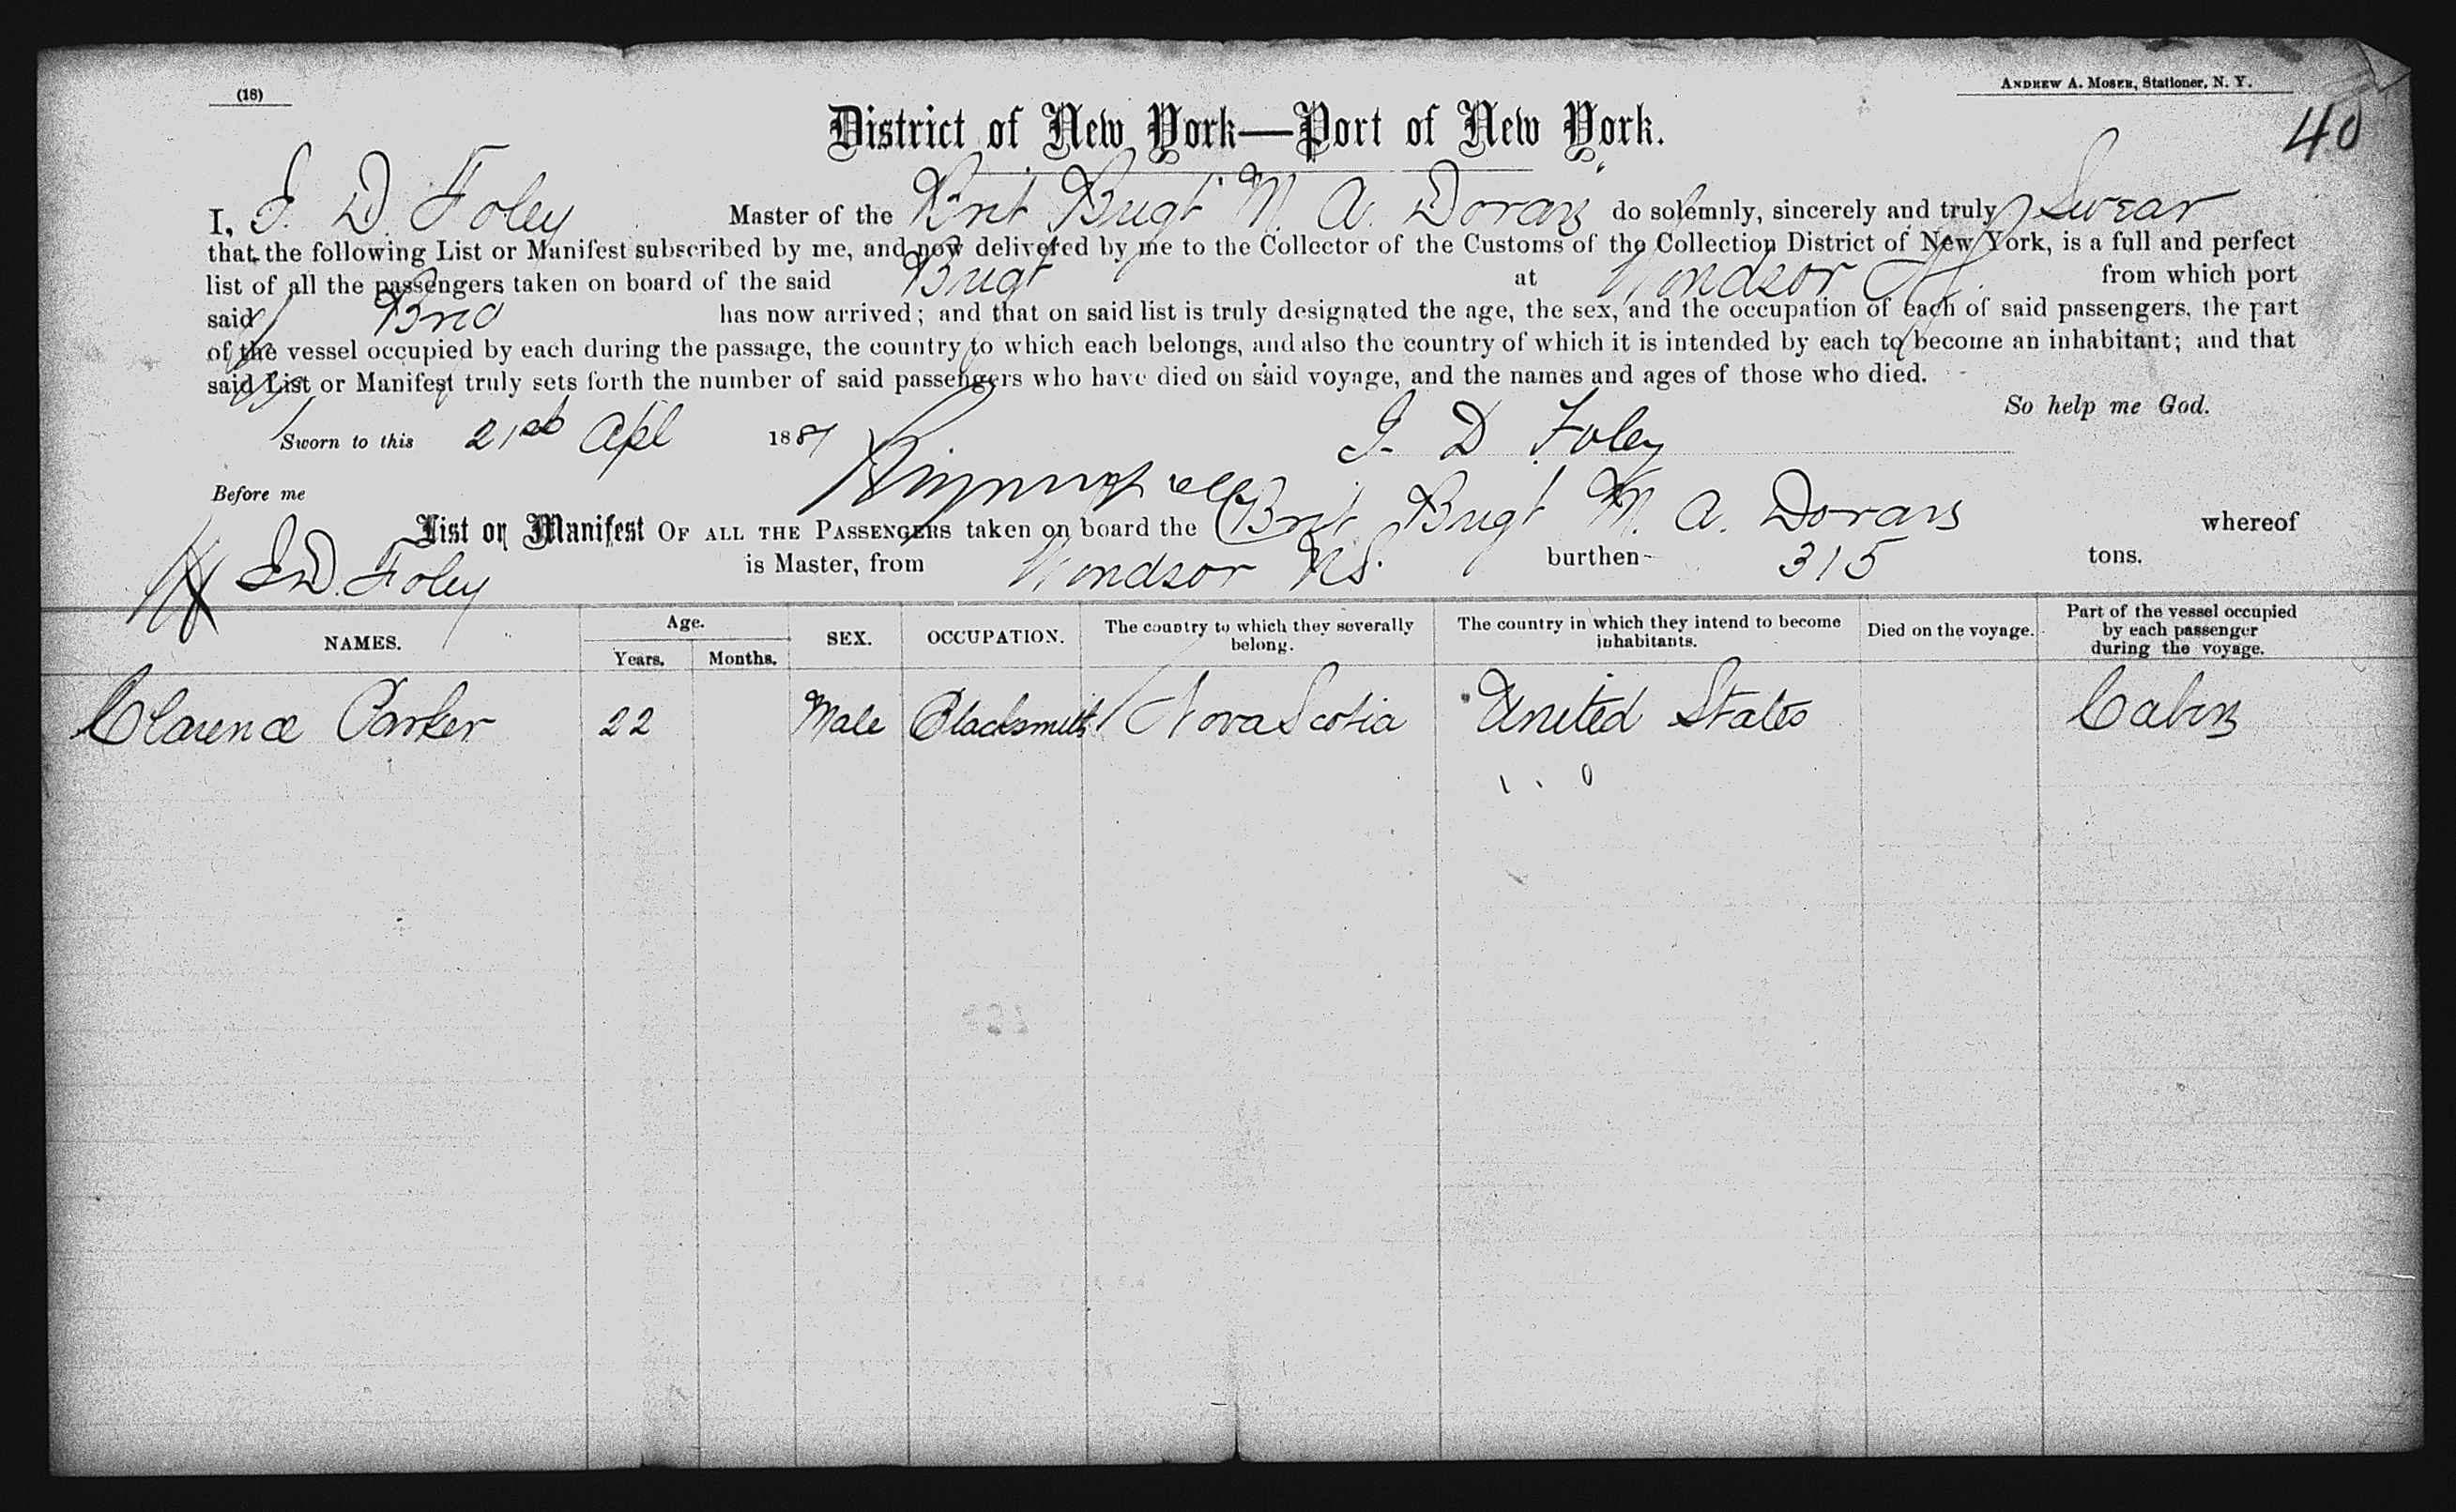 (18)
ANDREW A. MOSER, Stationer, N. Y.
40
District of New York—Port of New York.
I, J. D. Foley Master of the Brit Brigt M. A. Doran do solemnly, sincerely and truly Swear
that the following List or Manifest subscribed by me, and now delivered by me to the Collector of the Customs of the Collection District of New York, is a full and perfect
list of all the passengers taken on board of the said Brigt at Windsor from which port
said Brig has now arrived; and that on said list is truly designated the age, the sex, and the occupation of each of said passengers, the part
of the vessel occupied by each during the passage, the country to which each belongs, and also the country of which it is intended by each to become an inhabitant; and that
said List or Manifest truly sets forth the number of said passengers who have died on said voyage, and the names and ages of those who died.
So help me God.
Sworn to this 21st Apl 1887 J. D. Foley
Before me
List or Manifest OF ALL THE PASSENGERS taken on board the Brit Brigt M. A. Doran whereof
J. D. Foley is Master, from Windsor N.S. burthen 315 tons.
NAMES. Age. Years. Months. SEX. OCCUPATION. The country to which they severally belong. The country in which they intend to become inhabitants. Died on the voyage. Part of the vessel occupied by each passenger during the voyage.
Clarence Parker 22 Male Blacksmith Nova Scotia United States Cabin